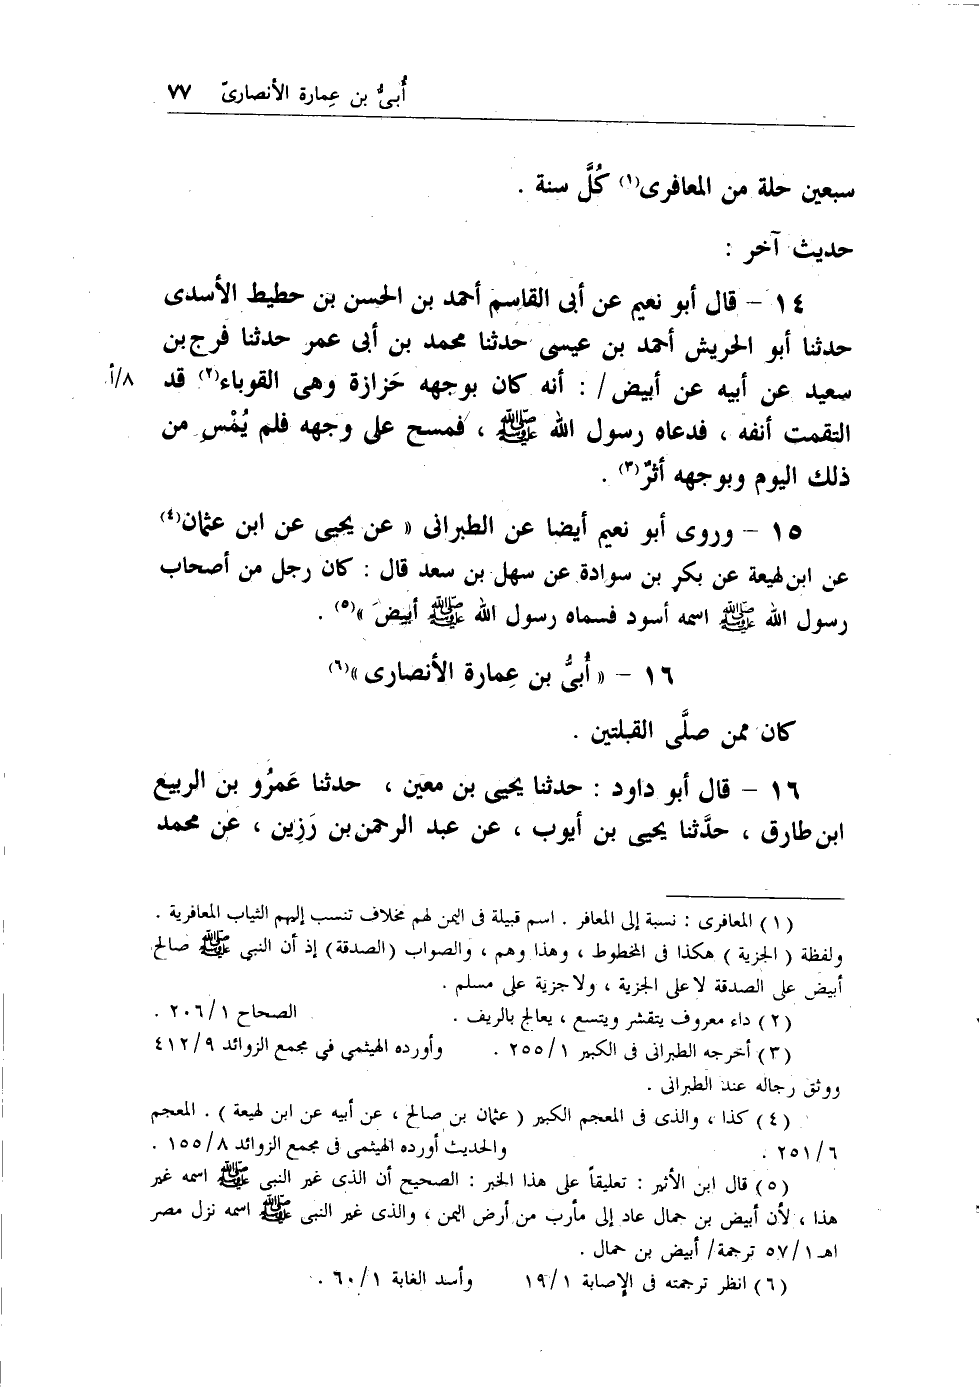 أُبىُّ بن عِمارة الأنصارىّ ٧٧
سبعين حلة من المعافرى(١) كُلَّ سنة .
حديث آخر :
١٤ – قال أبو نعيم عن أبى القاسم أحمد بن الحسن بن حطيط الأسدى
حدثنا أبو الحريش أحمد بن عيسى حدثنا محمد بن أبى عمر حدثنا فرج بن
سعيد عن أبيه عن أبيض / : أنه كان بوجهه حَزازة وهى القوباء(٢) قد ٨/أ
التقمت أنفه ، فدعاه رسول الله ﷺ ، فمسح على وجهه فلم يُمْسِ من
ذلك اليوم وبوجهه أثرٌ(٣) .
١٥ – وروى أبو نعيم أيضا عن الطبرانى « عن يحيى عن ابن عثمان(٤)
عن ابن لهيعة عن بكر بن سوادة عن سهل بن سعد قال : كان رجل من أصحاب
رسول الله ﷺ اسمه أسود فسماه رسول الله ﷺ أبيضَ »(٥) .
١٦ – « أُبىُّ بن عِمارة الأنصارى »(٦)
كان ممن صلَّى القبلتين .
١٦ – قال أبو داود : حدثنا يحيى بن معين ، حدثنا عَمرُو بن الربيع
ابن طارق ، حدَّثنا يحيى بن أيوب ، عن عبد الرحمن بن رَزِين ، عن محمد
(١) المعافرى : نسبة إلى المعافر . اسم قبيلة فى اليمن لهم مخلاف تنسب إليهم الثياب المعافرية .
ولفظة ( الجزية ) هكذا فى المخطوط ، وهذا وهم ، والصواب (الصدقة) إذ أن النبى ﷺ صالح
أبيض على الصدقة لا على الجزية ، ولا جزية على مسلم .
(٢) داء معروف يتقشر ويتسع ، يعالج بالريف . الصحاح ٢٠٦/١ .
(٣) أخرجه الطبرانى فى الكبير ٢٥٥/١ . وأورده الهيثمى في مجمع الزوائد ٤١٢/٩
ووثق رجاله عند الطبرانى .
(٤) كذا ، والذى فى المعجم الكبير ( عثمان بن صالح ، عن أبيه عن ابن لهيعة ) . المعجم
٢٥١/٦ . والحديث أورده الهيثمى فى مجمع الزوائد ١٥٥/٨ .
(٥) قال ابن الأثير : تعليقاً على هذا الخبر : الصحيح أن الذى غير النبى ﷺ اسمه غير
هذا ، لأن أبيض بن حمال عاد إلى مأرب من أرض اليمن ، والذى غير النبى ﷺ اسمه نزل مصر
اهـ ٥٧/١ ترجمة/ أبيض بن حمال .
(٦) انظر ترجمته فى الإصابة ١٩/١ وأسد الغابة ٦٠/١ .